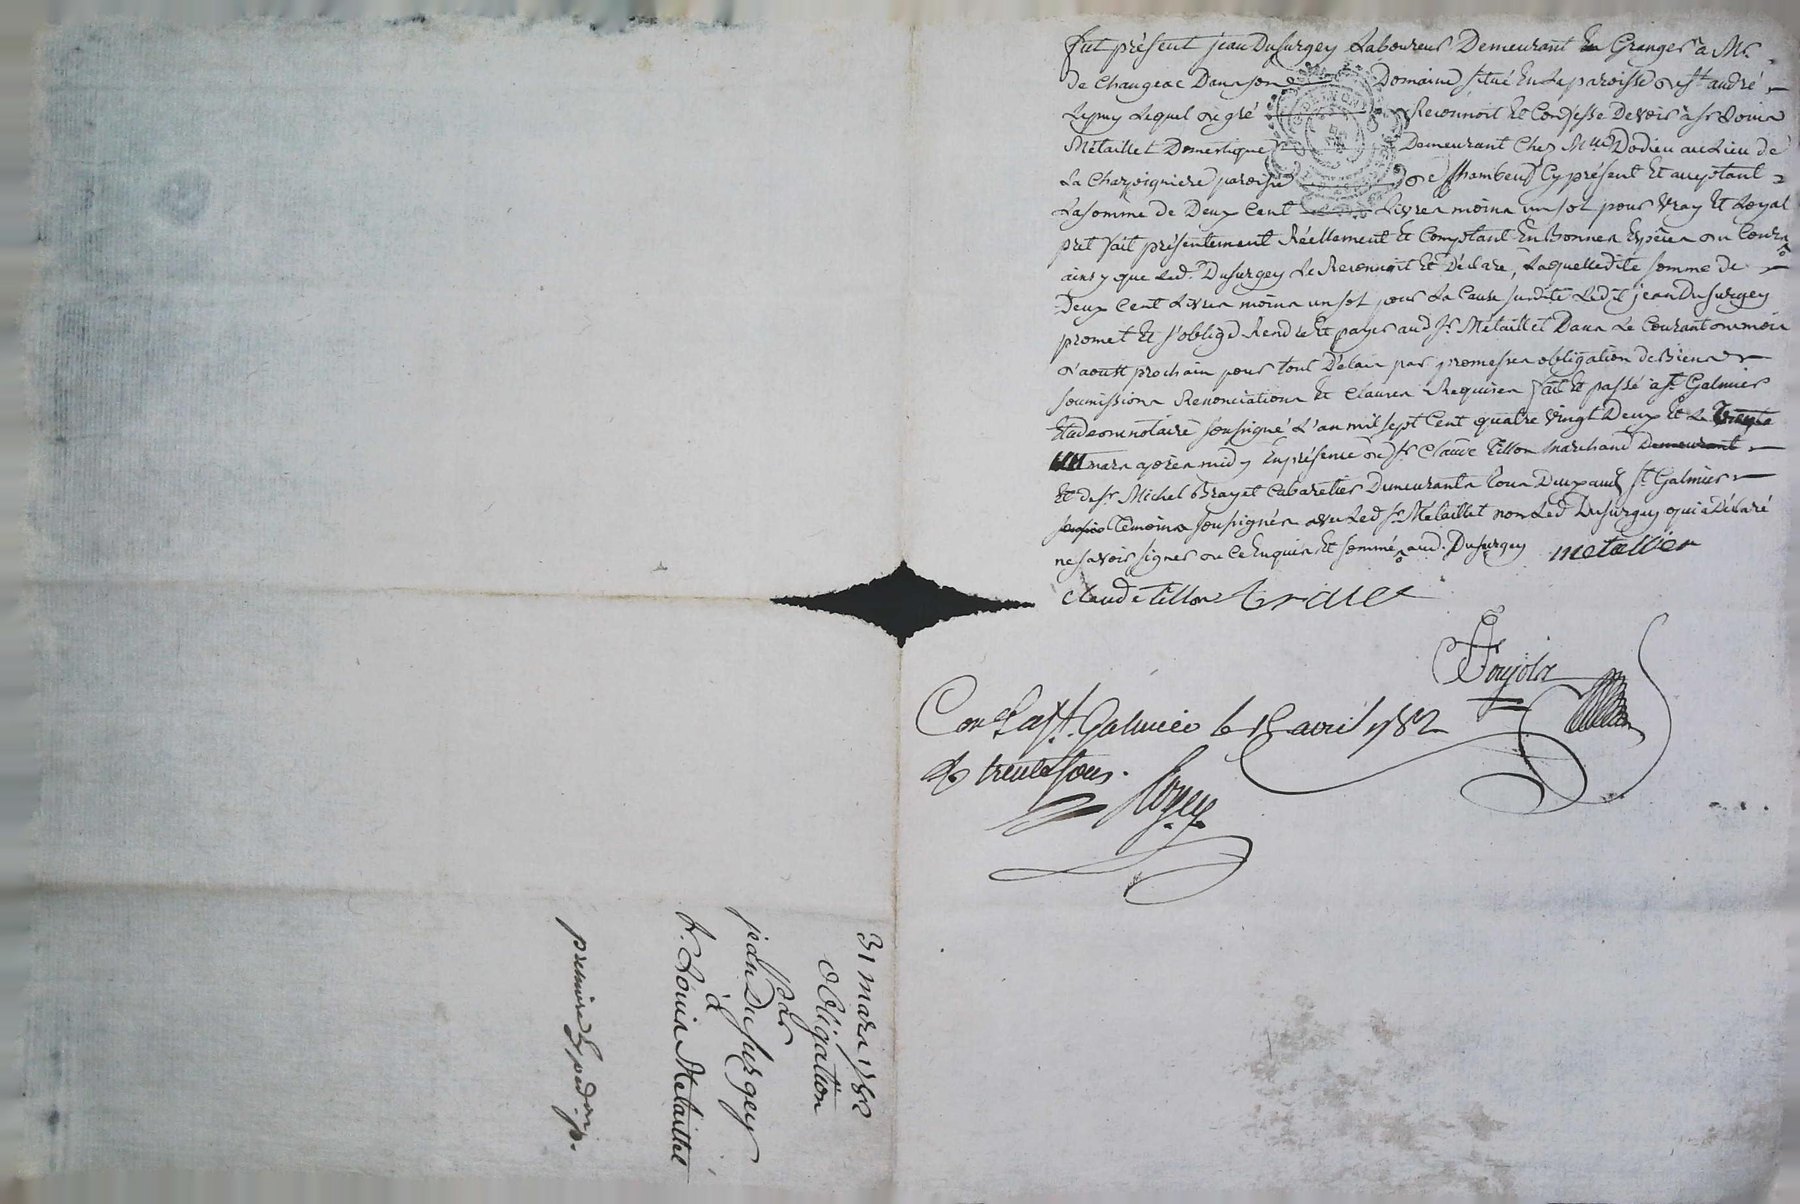 fut présent jean Dusurgey Laboureur Demeurant En Granger a Mr.
de Changeac Dans son Domaine situé En La paroisse de st andré
Lepuy Lequel de gré Reconnoit Et Confesse Devoir à sr Louis
Métaillet Domestique Demeurant Chez Mlle Dodieu au Lieu de
La paroisse de Chambeuf Cy présent Et acceptant
La somme de Deux Cent Livres moins un sol pour vray Et Loyal
pret fait présentement Réellement Et Comptant En Bonnes Espèces du Cours
ainsy que Led. Dusurgey Le Reconnoit Et Déclare, Laquelle dite somme de
Deux Cent Livres moins un sol pour La Cause susdite Ledit jean Dusurgey
promet Et s'oblige Rendre Et payer aud. sr. Métaillet Dans Le Courant du mois
d'aoust prochain pour tout Délais par promesses obligation de Biens
soumissions Renonciations Et Clauses Requises fait Et passé a st. Galmier
Etude du notaire soussigné L'an mil sept Cent quatre vingt Deux Et Le
mars après midy En présence de sr. Claude Tillon Marchand Demeurant
Et de sr. Michel Brayet Cabaretier Demeurants tous Deux aud. st. Galmier
Témoins soussignés avec Led. sr. Métaillet non Led. Dusurgey qui a Déclaré
ne savoir signer de Ce Enquis Et sommé aud. Dusurgey metallier
Claude tillon
Con.lé a st. Galmier le 15 avril 1782
trente sous.
31 mars 1782
obligation
par
jean Dusurgey
à
sr. Louis Metaillet
premiere Expédion